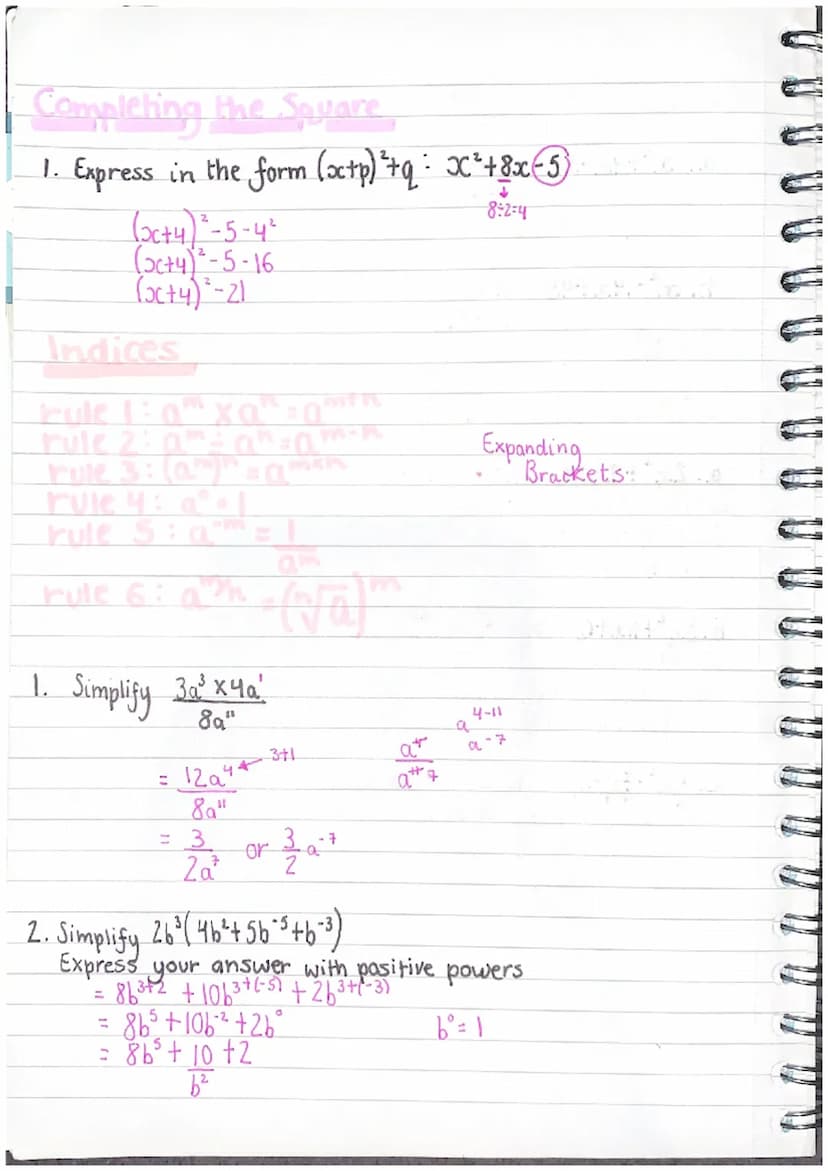 Completing the Square
1. Express in the form (x+p)²+q : x²+8x-5
↓
8÷2=4
(x+4)²-5-4²
(x+4)²-5-16
(x+4)²-21
Indices
rule 1: aᵐ × aⁿ = aᵐ⁺ⁿ
rule 2: aᵐ ÷ aⁿ = aᵐ⁻ⁿ
rule 3: (aᵐ)ⁿ = aᵐˣⁿ
rule 4: a⁰ = 1
rule 5: a⁻ᵐ = 1/aᵐ
rule 6: a^m/n = (ⁿ√a)ᵐ
Expanding
Brackets
1. Simplify 3a³ × 4a¹ / 8a¹¹
= 12a⁴ / 8a¹¹ ← 3+1
= 3/2a⁷ or 3/2 a⁻⁷
a⁴ / a¹¹ 7
a⁴⁻¹¹
a⁻⁷
2. Simplify 2b³(4b²+5b⁻⁵+b⁻³)
Express your answer with positive powers
= 8b³⁺² + 10b³⁺⁽⁻⁵⁾ + 2b³⁺⁽⁻³⁾
= 8b⁵ + 10b⁻² + 2b⁰ b⁰ = 1
= 8b⁵ + 10/b² + 2